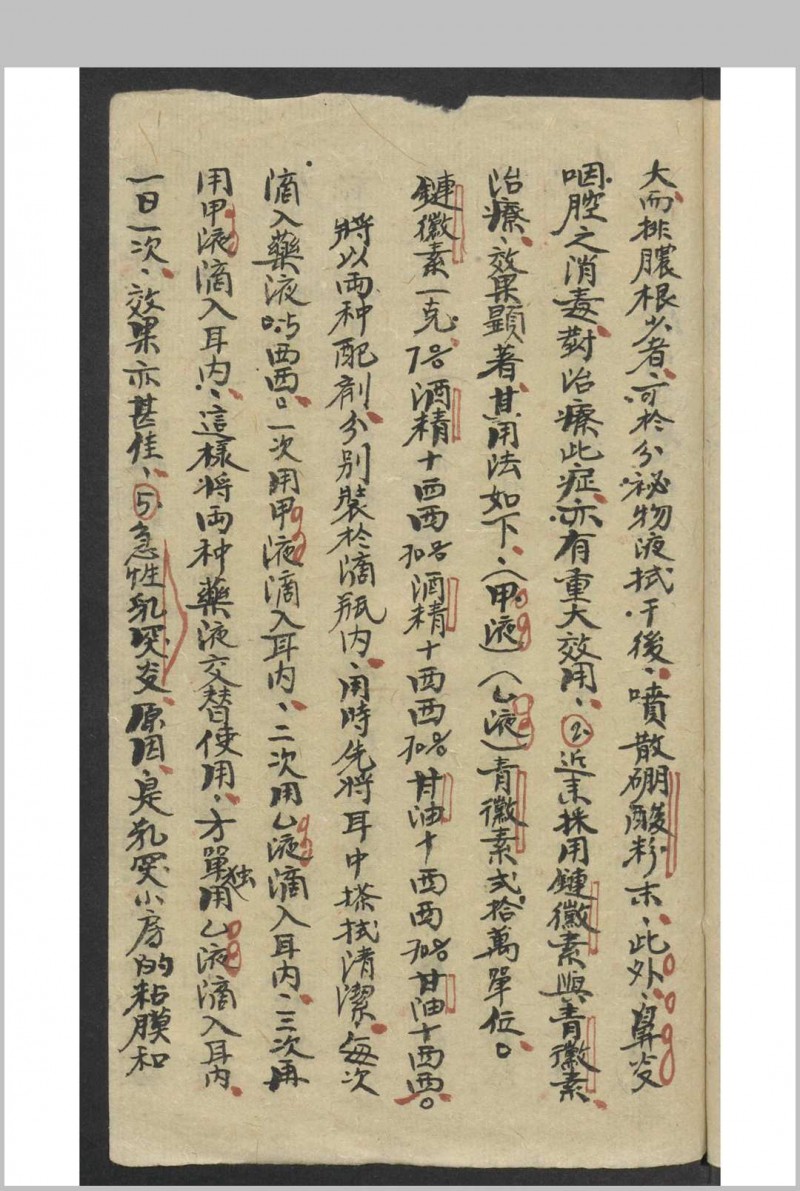 大而排膿根少者、可於分祕物液拭干後、噴散硼酸粉末、此外、鼻炎
咽腔之消毒對治療此症、亦有重大效用、②近来採用鏈黴素與青黴素
治療、效果顯著、其用法如下、（甲液）（乙液）青黴素弍拾萬單位。
鏈黴素一克、70%酒精十西西70%酒精十西西70%甘油十西西70%甘油十西西。
將以両种配劑分別裝於滴瓶内、用時先將耳中搽拭清潔、每次
滴入藥液 西西。一次用甲液滴入耳内、二次用乙液滴入耳内、三次再
用甲液滴入耳内、這樣將両种藥液交替使用、方單独用乙液滴入耳内、
一日一次、效果亦甚佳、⑤急性乳突炎、原因、是乳突小房的粘膜和